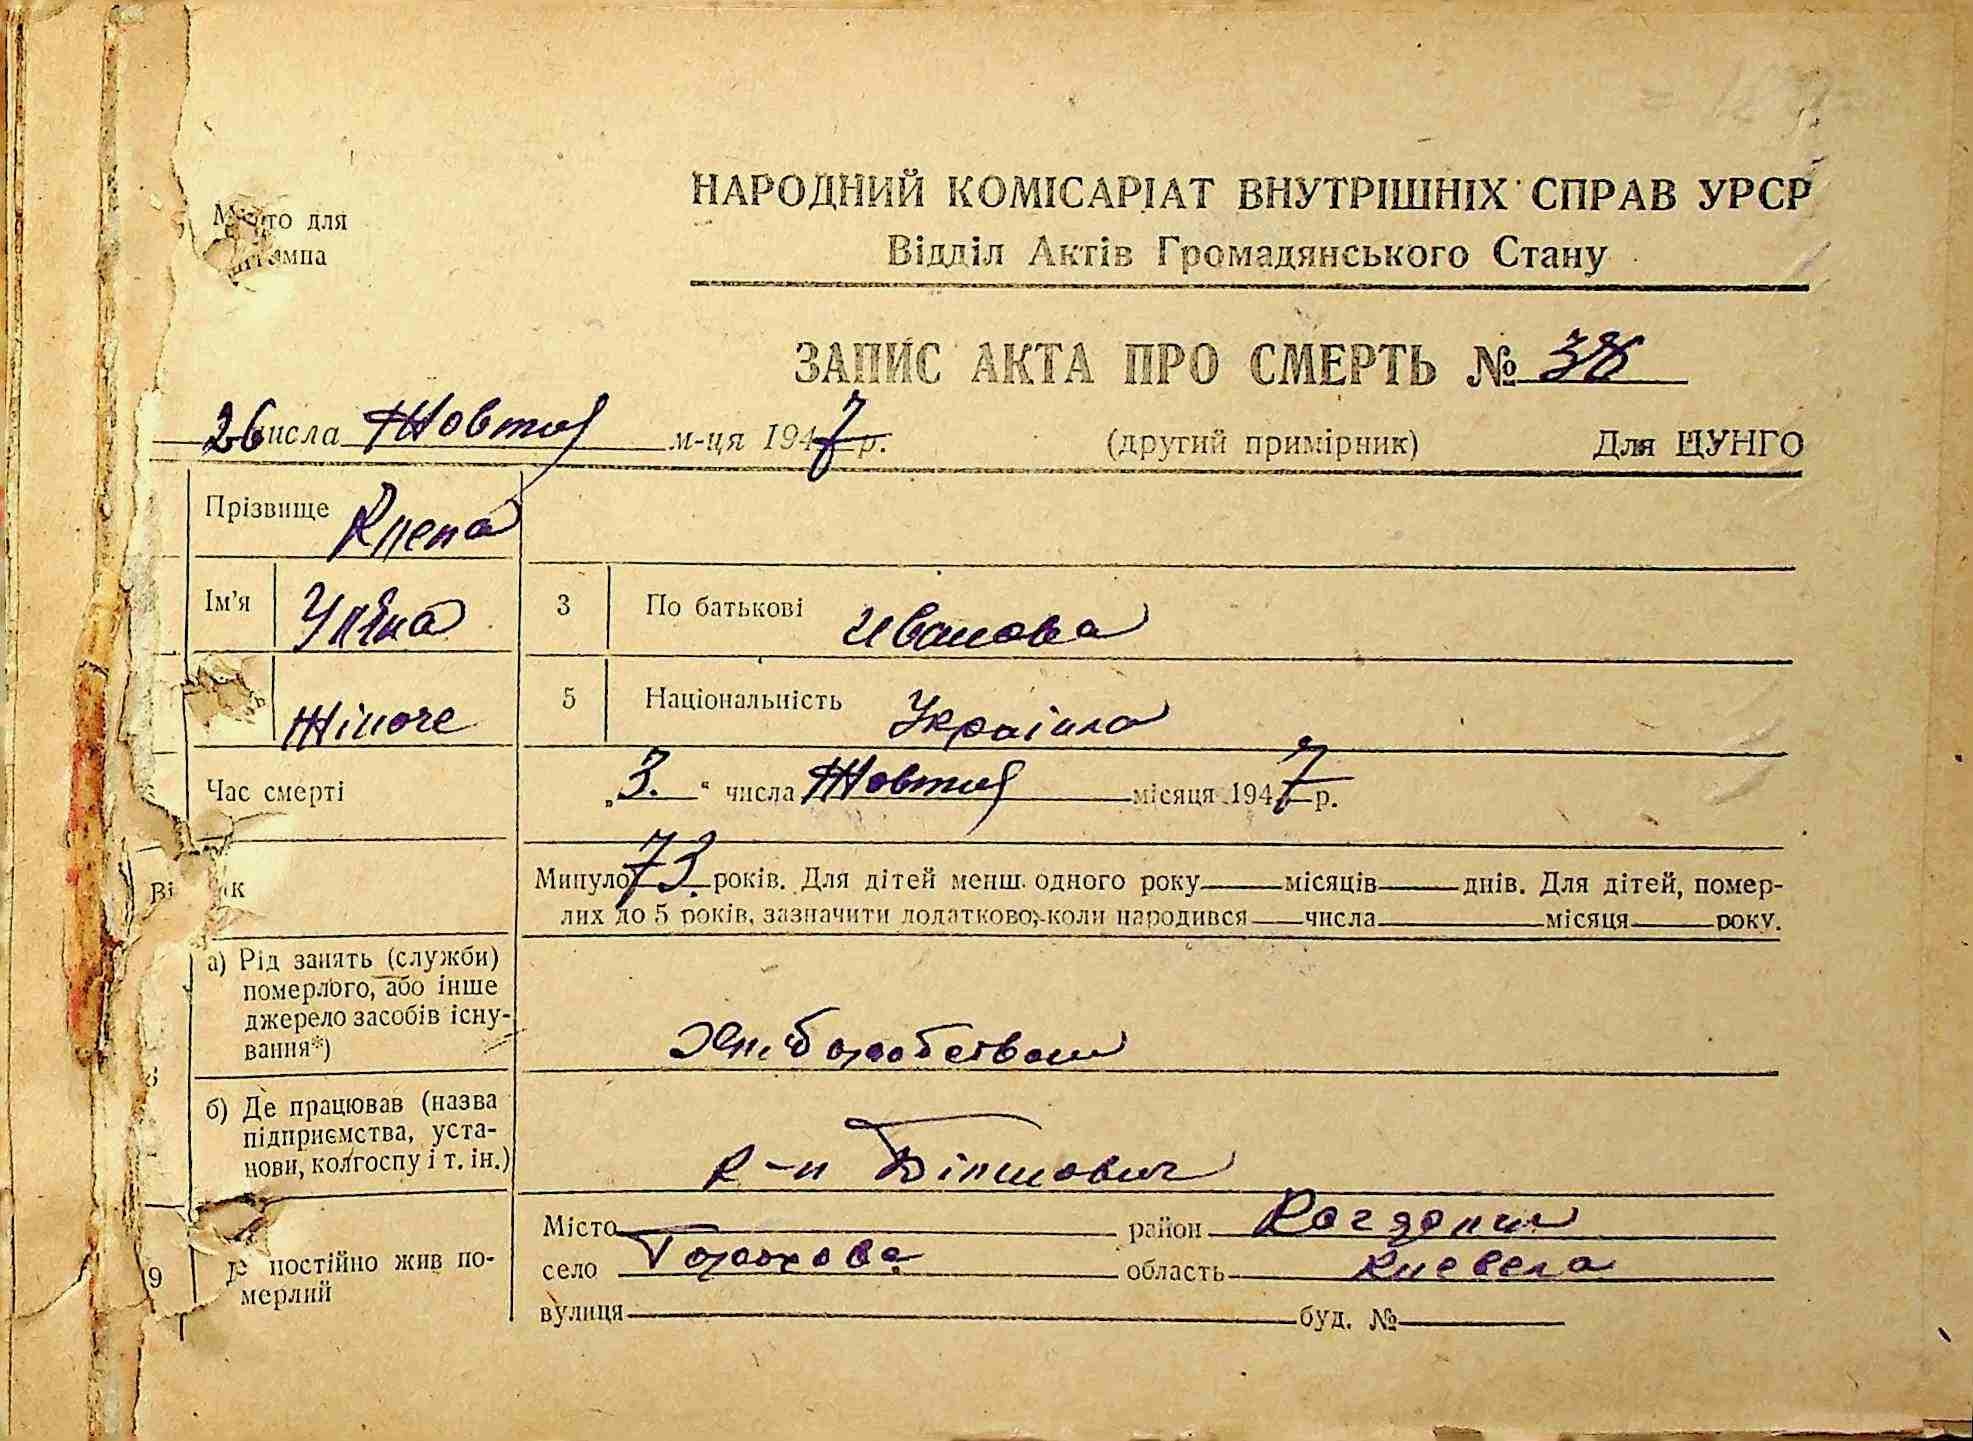 Місто для
штампа
НАРОДНИЙ КОМІСАРІАТ ВНУТРІШНІХ СПРАВ УРСР
Відділ Актів Громадянського Стану
ЗАПИС АКТА ПРО СМЕРТЬ № 38
26 числа Жовтня м-ця 1947 р. (другий примірник) Для ЦУНГО
Прізвище Клепа
Ім'я Уляна 3 По батькові Иванова
Жіноче 5 Національність Українка
Час смерті „3." числа Жовтня місяця 1947 р.
Вік Минуло 73 років. Для дітей менш. одного року місяців днів. Для дітей, помер-
лих до 5 років, зазначити додатково, коли народився числа місяця року.
а) Рід занять (служби)
померлого, або інше
джерело засобів існу-
вання*)
Хліборобством
б) Де працював (назва
підприємства, уста-
нови, колгоспу і т. ін.)
к-п Більшович
9 Де постійно жив по-
мерлий
Місто район
село Горохова область Киевска
вулиця буд. №